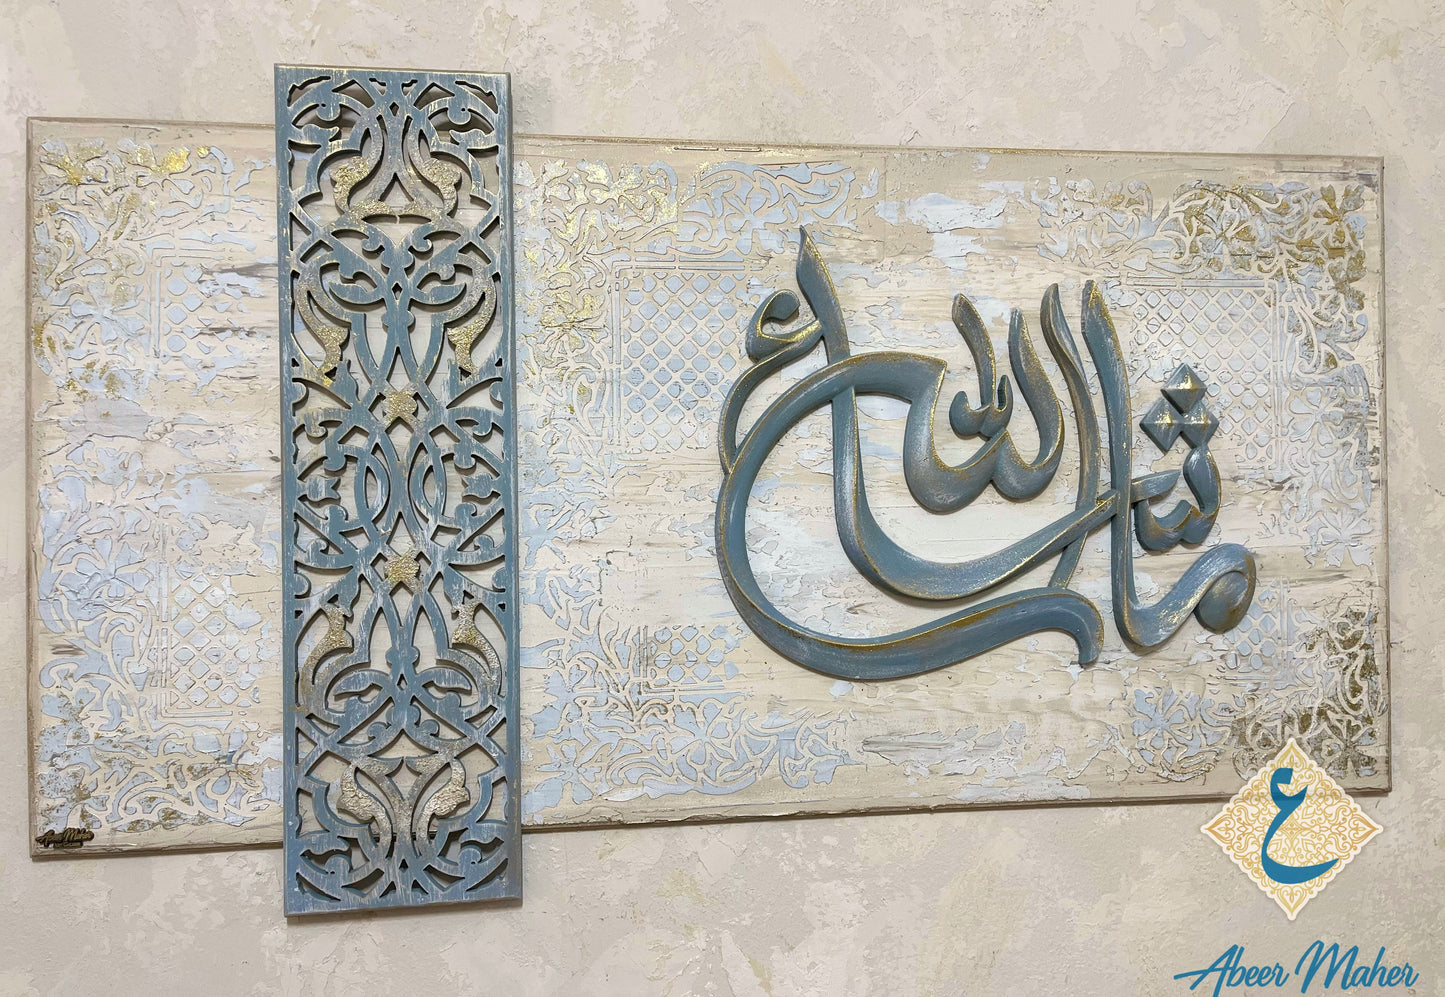 ما شاء الله
Abeer Maher
ع
Abeer Maher